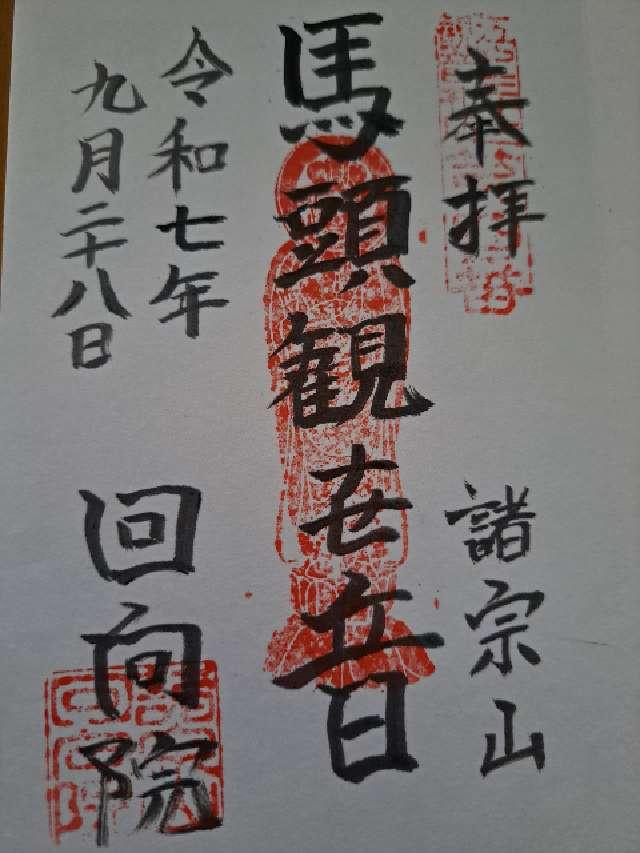 奉拝
諸宗山
馬頭観世音
令和七年
九月二十八日
回向院